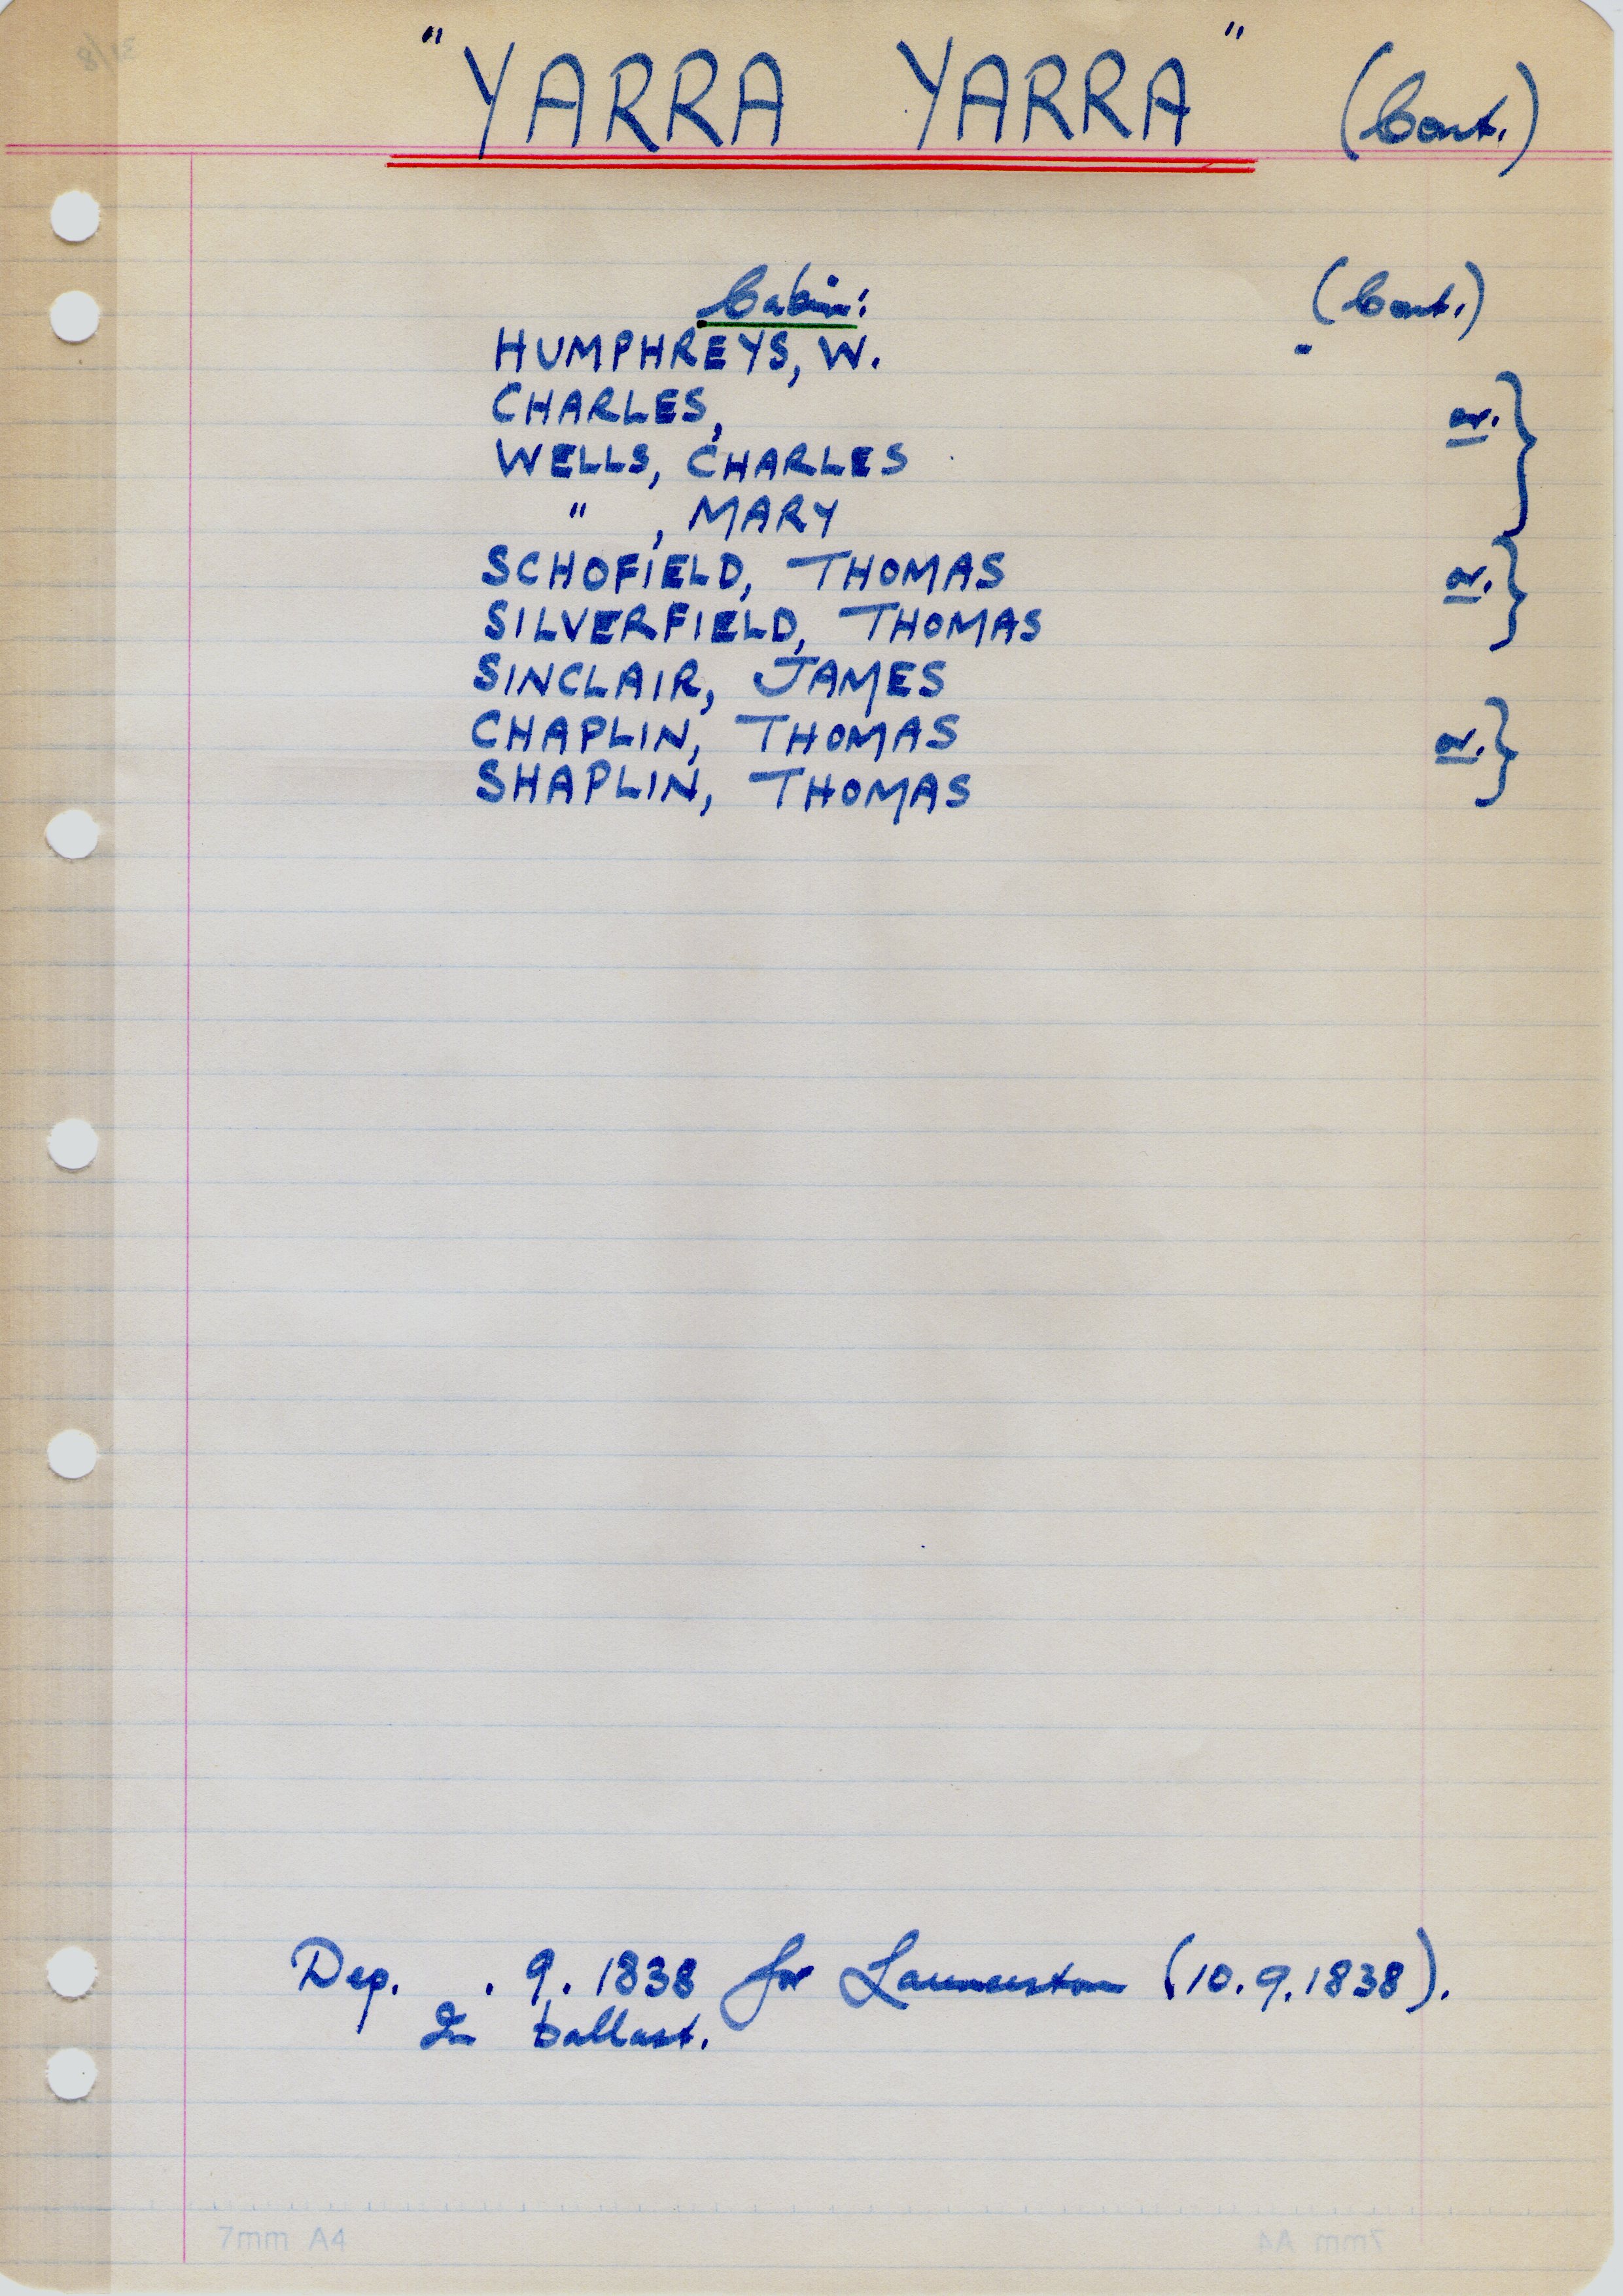 "YARRA YARRA" (Cont.)
Cabin: (Cont.)
HUMPHREYS, W.
CHARLES, or. }
WELLS, CHARLES
" , MARY
SCHOFIELD, THOMAS or. }
SILVERFIELD, THOMAS
SINCLAIR, JAMES
CHAPLIN, THOMAS or. }
SHAPLIN, THOMAS
Dep. . 9. 1838 for Launceston (10.9.1838).
In ballast.
7mm A4
7mm A4